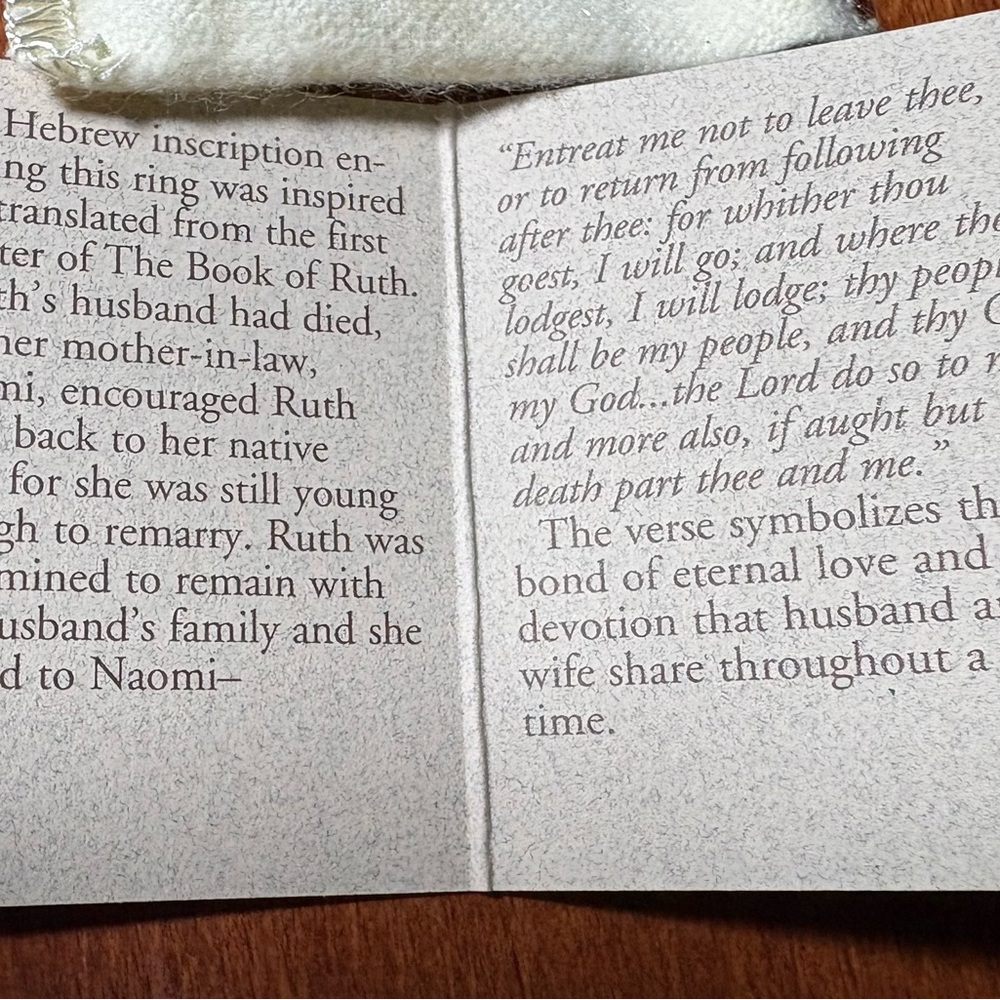 Hebrew inscription en-
ng this ring was inspired
translated from the first
ter of The Book of Ruth.
th's husband had died,
her mother-in-law,
mi, encouraged Ruth
back to her native
for she was still young
gh to remarry. Ruth was
mined to remain with
usband's family and she
d to Naomi–
“Entreat me not to leave thee,
or to return from following
after thee: for whither thou
goest, I will go; and where tho
lodgest, I will lodge; thy peopl
shall be my people, and thy G
my God...the Lord do so to m
and more also, if aught but
death part thee and me.”
The verse symbolizes th
bond of eternal love and
devotion that husband an
wife share throughout a
time.